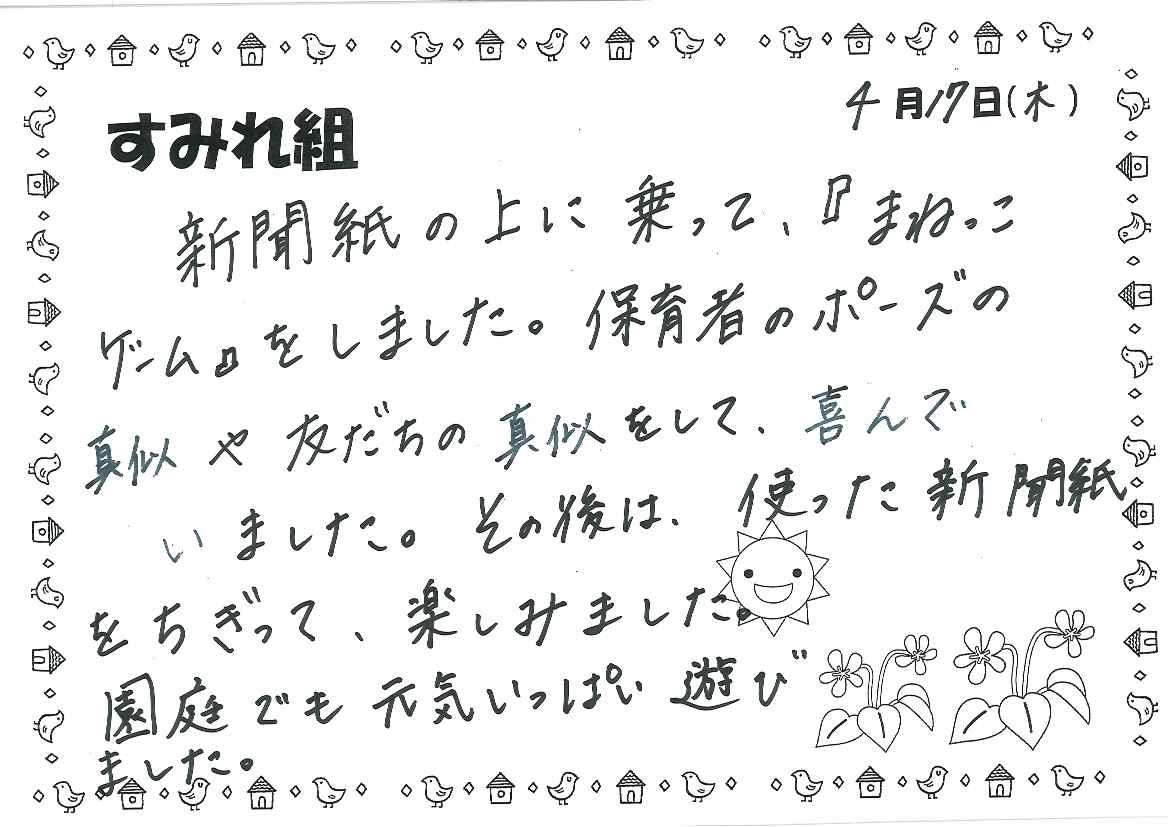 4月17日(木)
すみれ組
新聞紙の上に乗って、『まねっこ
ゲーム』をしました。保育者のポーズの
真似や友だちの真似をして、喜んで
いました。その後は、使った新聞紙
をちぎって、楽しみました。
園庭でも元気いっぱい遊び
ました。